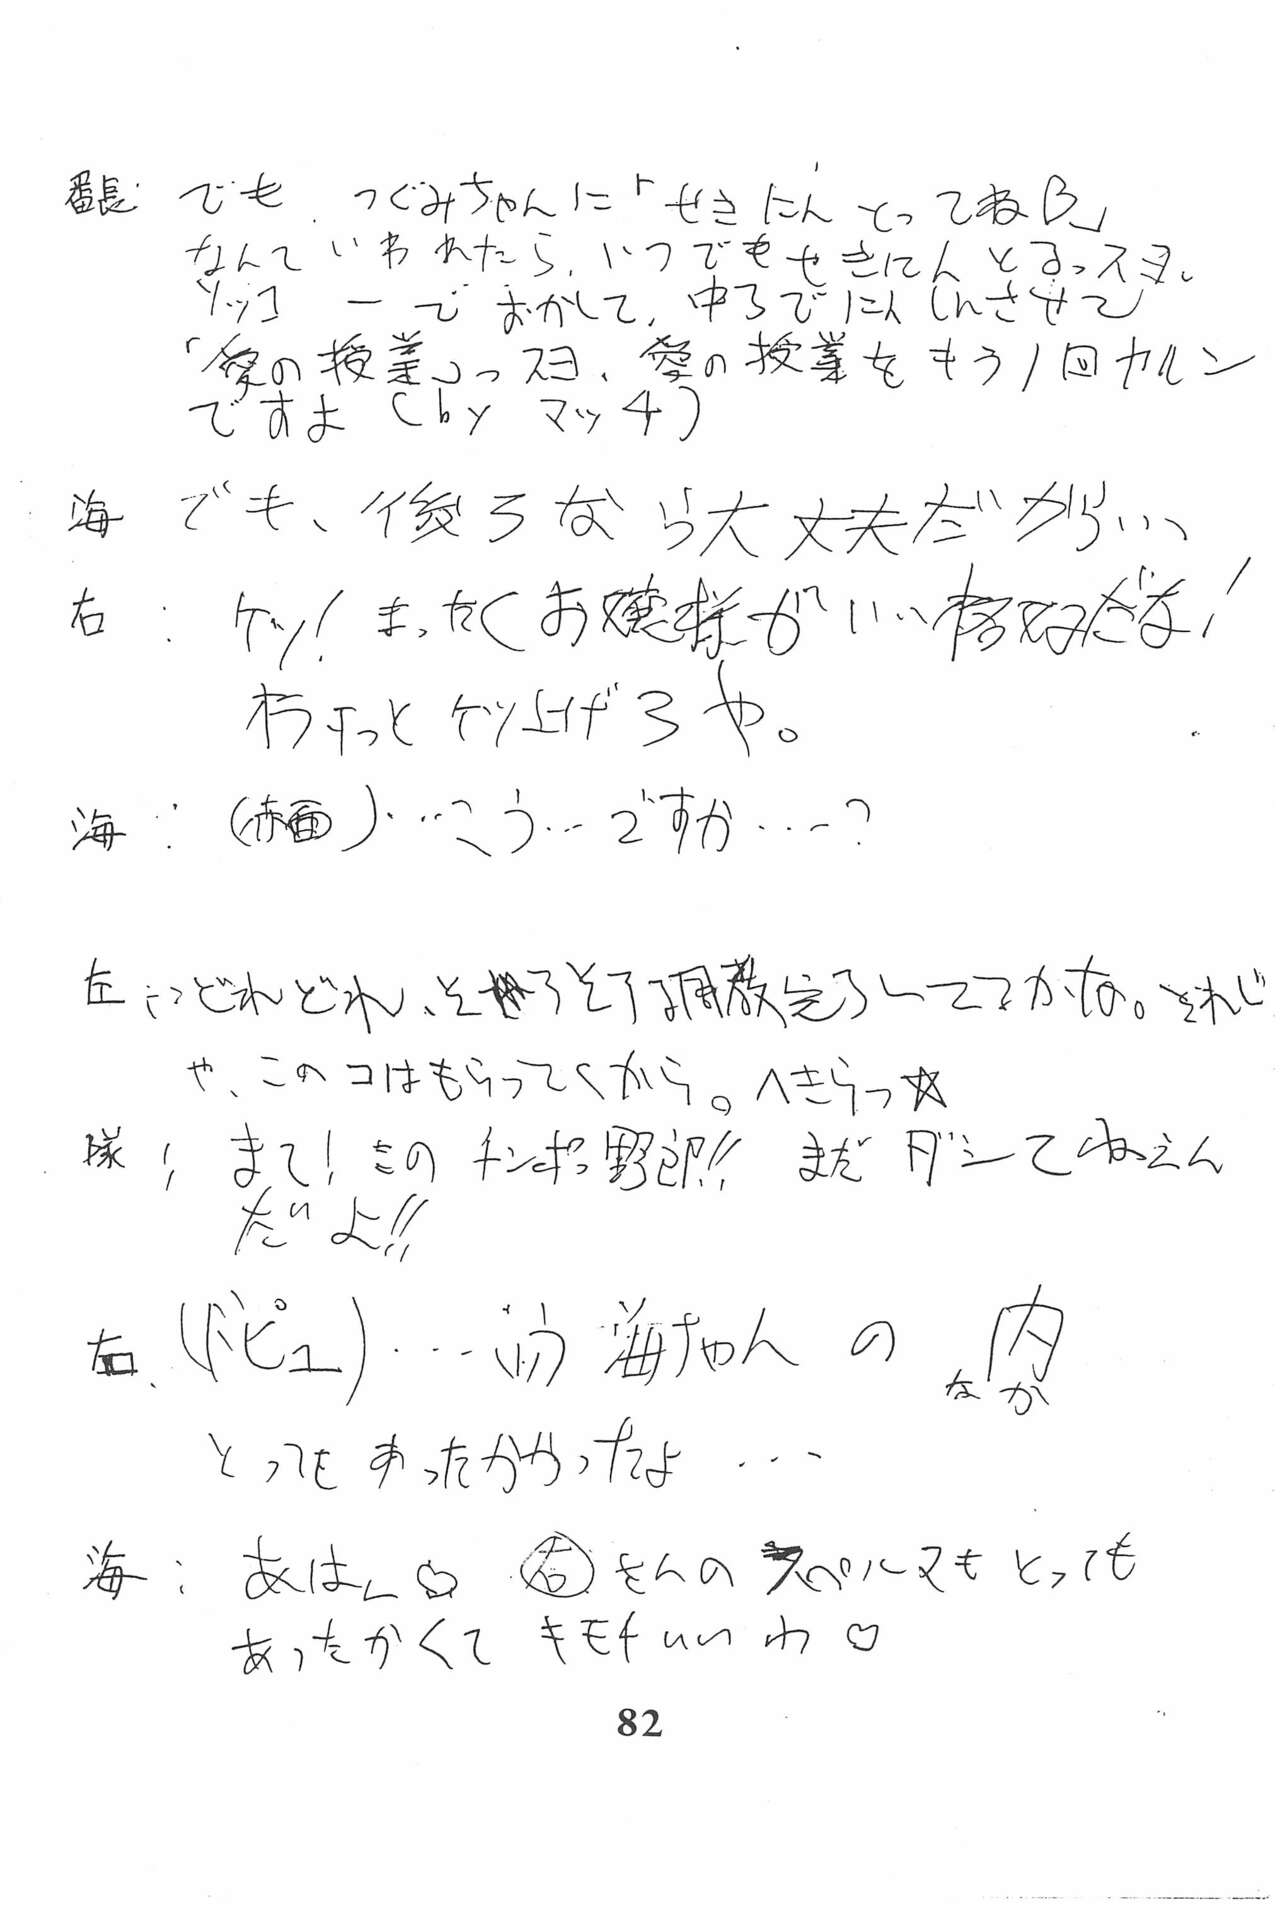 番長: でも、つぐみちゃんに「せきにんとってね♡」
なんていわれたら、いつでもせきにんとるっスヨ、
ソッコーでおかして、中ろでにんしんさせて
「愛の授業」っスヨ、愛の授業をもう1回ヤルン
ですよ(by マッチ)
海 でも、後ろなら大丈夫だから…、
右: ケッ! まったくお嬢様がいい格好だな!
オラ、もっとケツ上げろや。
海: (赤面)…こう…ですか…?
左: どれどれ、そろそろ調教完了してるかな。それじ
や、このコはもらってくから。へきらっ☆
隊! まて! このチンポ野郎!! まだダシてねえん
だよ!!
右 (ドピュ)… 海ちゃんの内
なか
とってもあったかかったよ…
海: あはん♡ 右さんのスペルマもとっても
あったかくてキモチいいわ♡
82